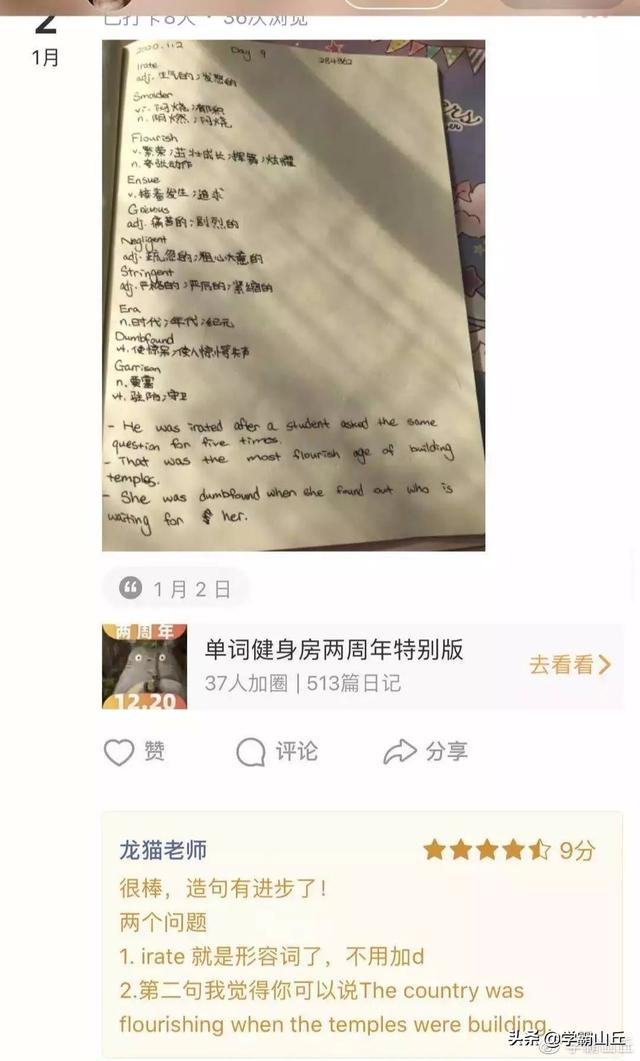 2
1月
已打卡8天 · 36次浏览
2020.1.2
Day 9
284862
Irate
adj. 生气的；发怒的
Smolder
vi. 闷烧；郁积
n. 闷燃；闷烧
Flourish
v. 繁荣；茁壮成长；挥舞；炫耀
n. 夸张动作
Ensue
v. 接着发生；追求
Grievous
adj. 痛苦的；剧烈的
Negligent
adj. 疏忽的；粗心大意的
Stringent
adj. 严格的；严厉的；紧缩的
Era
n. 时代；年代；纪元
Dumbfound
vt. 使惊呆；使人惊愕失声
Garrison
n. 要塞
vt. 驻防；守卫
- He was irated after a student asked the same
question for five times.
- That was the most flourish age of building
temples.
- She was dumbfound when she found out who is
waiting for her.
1月2日
两周年
12.20
单词健身房两周年特别版
37人加圈 | 513篇日记
去看看
赞
评论
分享
龙猫老师
9分
很棒，造句有进步了！
两个问题
1. irate 就是形容词了，不用加d
2.第二句我觉得你可以说The country was
flourishing when the temples were building.
头条 @学霸山丘